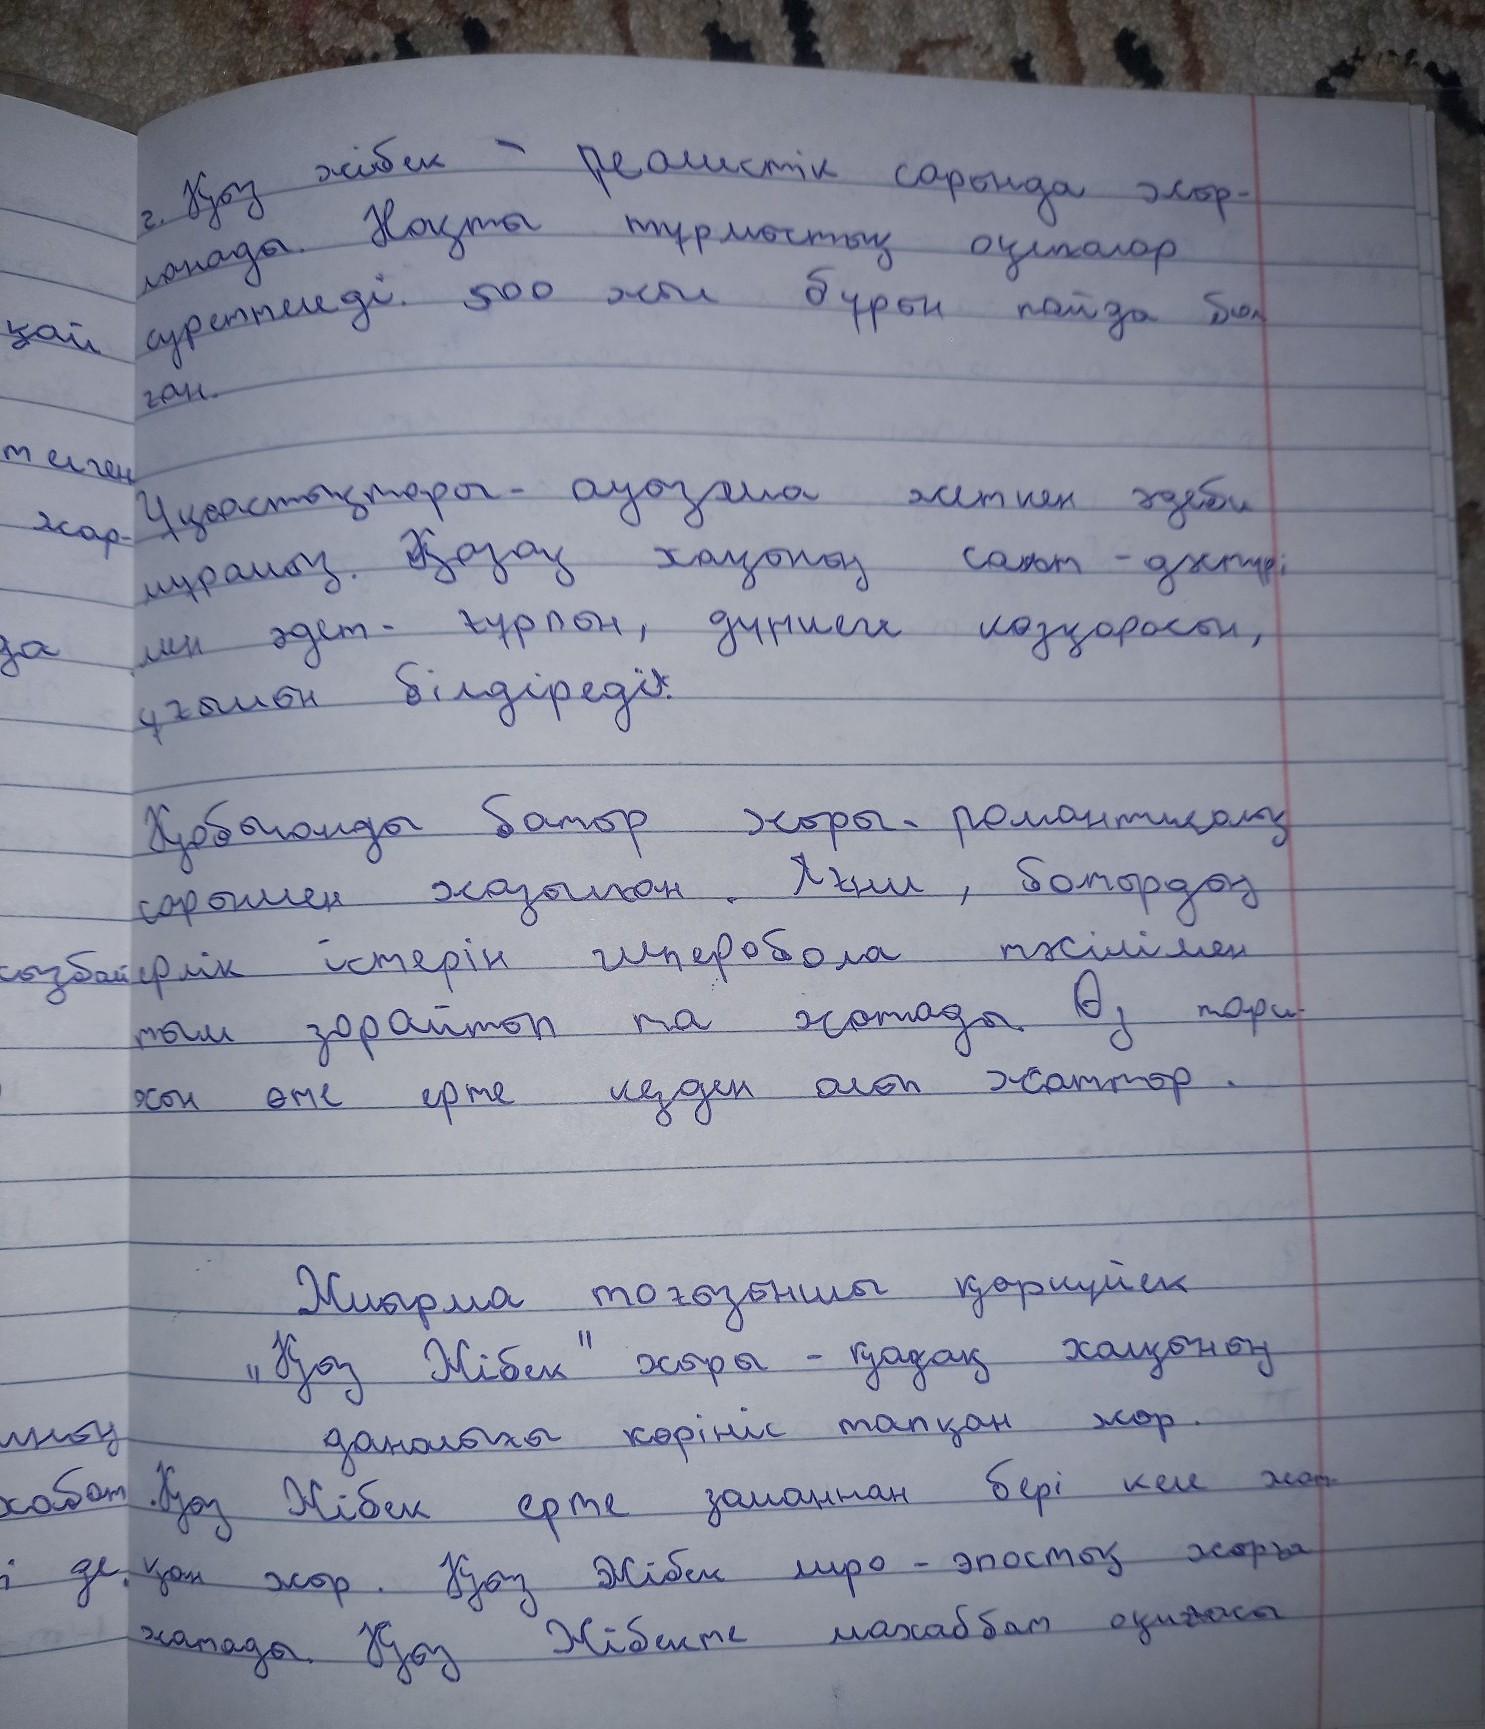 қай
телген
жар-
да
сызбай
ның
хабат
і де.
2. Қыз жібек - реалистік сарында жыр-
ланады. Нақты тұрмыстық оқиғалар
суреттеледі. 500 жыл бұрын пайда бол
ған.
Ұқсастықтары - ауызша жеткен әдеби
мұрамыз. Қазақ халқының салт - дәстүрі
мен әдет - ғұрпын, дүниеге көзқарасын,
ұғымын білдіреді.
Қобыланды батыр жыры - романтикалық
сарынмен жазылған. Яғни, батырдың
ерлік істерін гипербола тәсілімен
тым зорайтып та жатады. Өз тари-
хын өте ерте кезден алып жаттыр.
Жиырма тоғызыншы қыркүйек
"Қыз Жібек" жыры - қазақ халқының
даналығы көрініс тапқан жыр.
Қыз Жібек ерте заманнан бері келе жат-
қан жыр. Қыз Жібек лиро - эпостық жырға
жатады. Қыз Жібекте махаббат оқиғасы